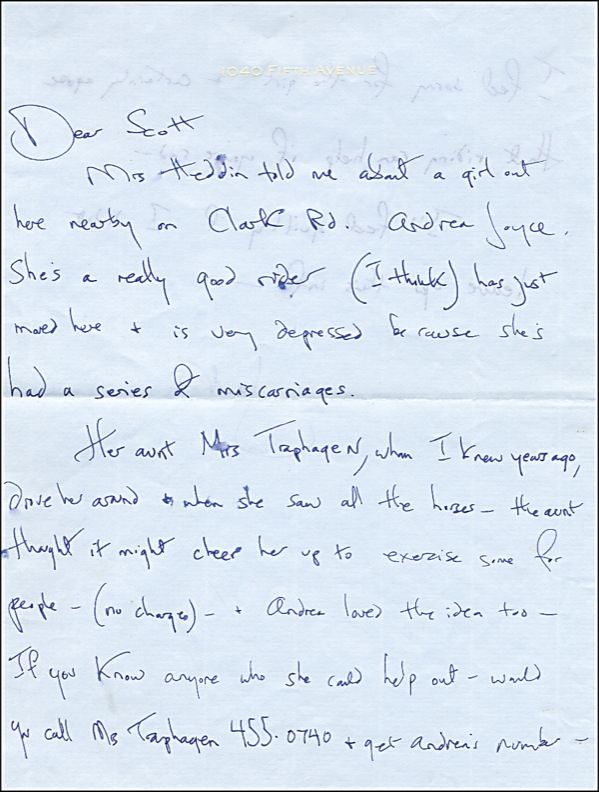 1040 FIFTH AVENUE
Dear Scott
Mrs Heddin told me about a girl out
here nearby on Clark Rd. Andrea Joyce.
She's a really good rider (I think) has just
moved here + is very depressed because she's
had a series of miscarriages.
Her aunt Mrs Traphagen, whom I knew years ago,
drove her around + when she saw all the horses — the aunt
thought it might cheer her up to exercise some for
people — (no charge) — + Andrea loved the idea too —
If you know anyone who she could help out — would
you call Mrs Traphagen 455.0740 + get Andrea's number —